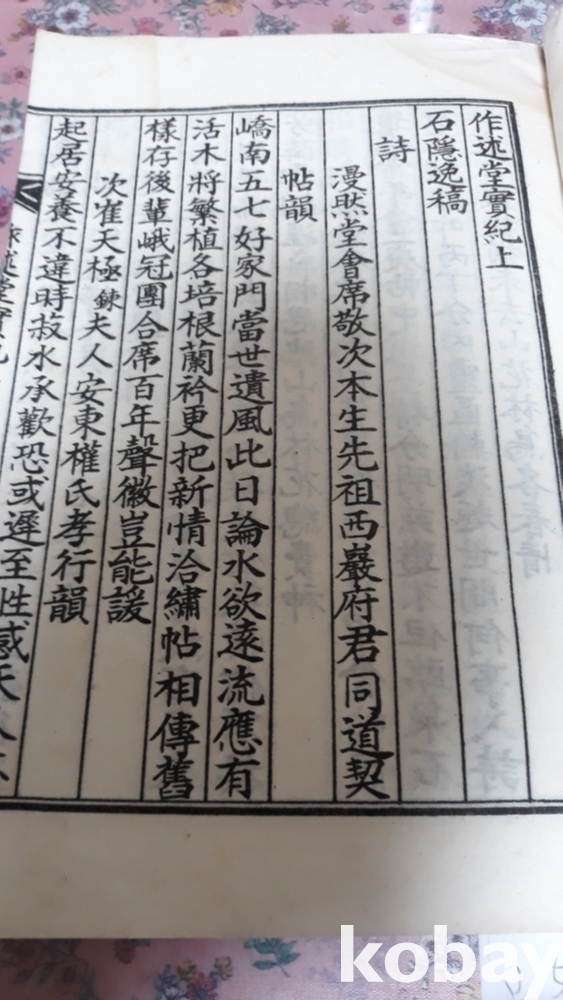 作述堂實紀上
石隱逸稿
詩
漫然堂會席敬次本生先祖西巖府君同道契
帖韻
嶠南五七好家門當世遺風此日論水欲遠流應有
活木將繁植各培根蘭衿更把新情洽繡帖相傳舊
樣存後輩峨冠團合席百年聲徽豈能諼
次崔天極鍊夫人安東權氏孝行韻
起居安養不違時菽水承歡恐或遲至性感天
kobay